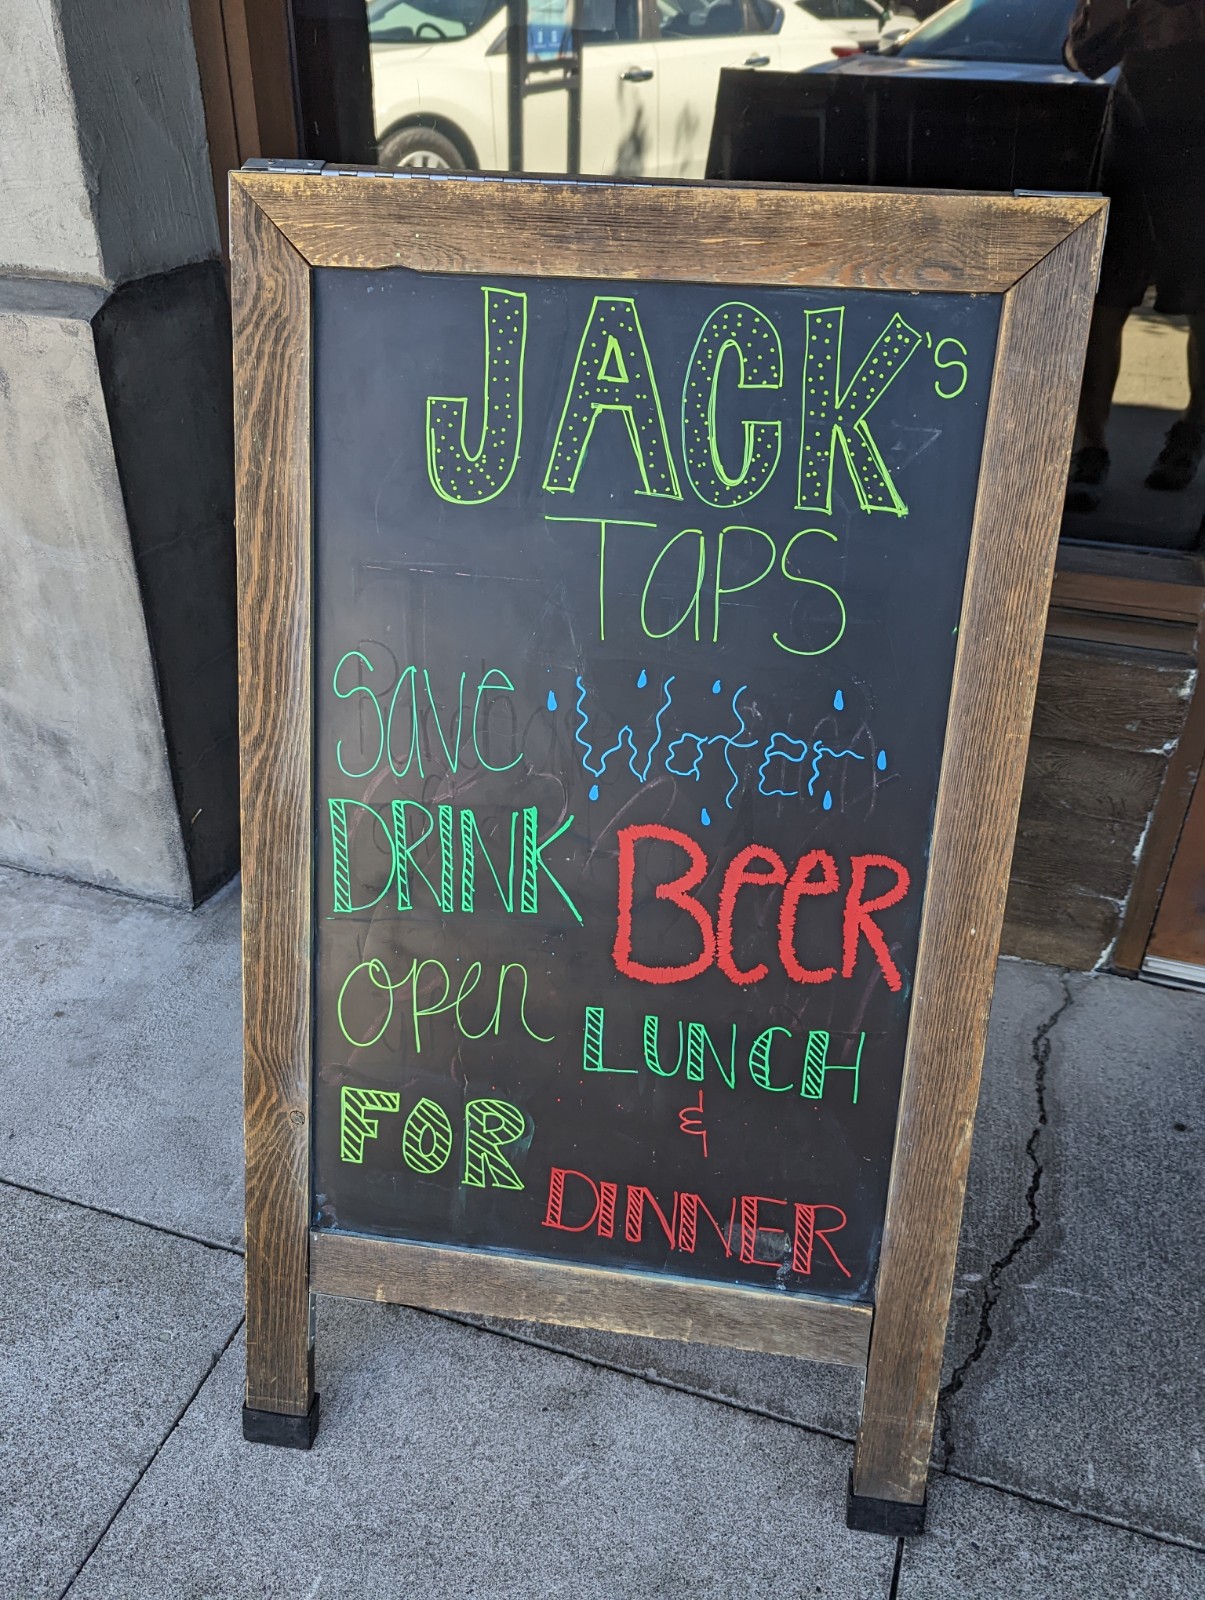 JACK's
TAPS
Save Water
DRINK BEER
open LUNCH
FOR &
DINNER